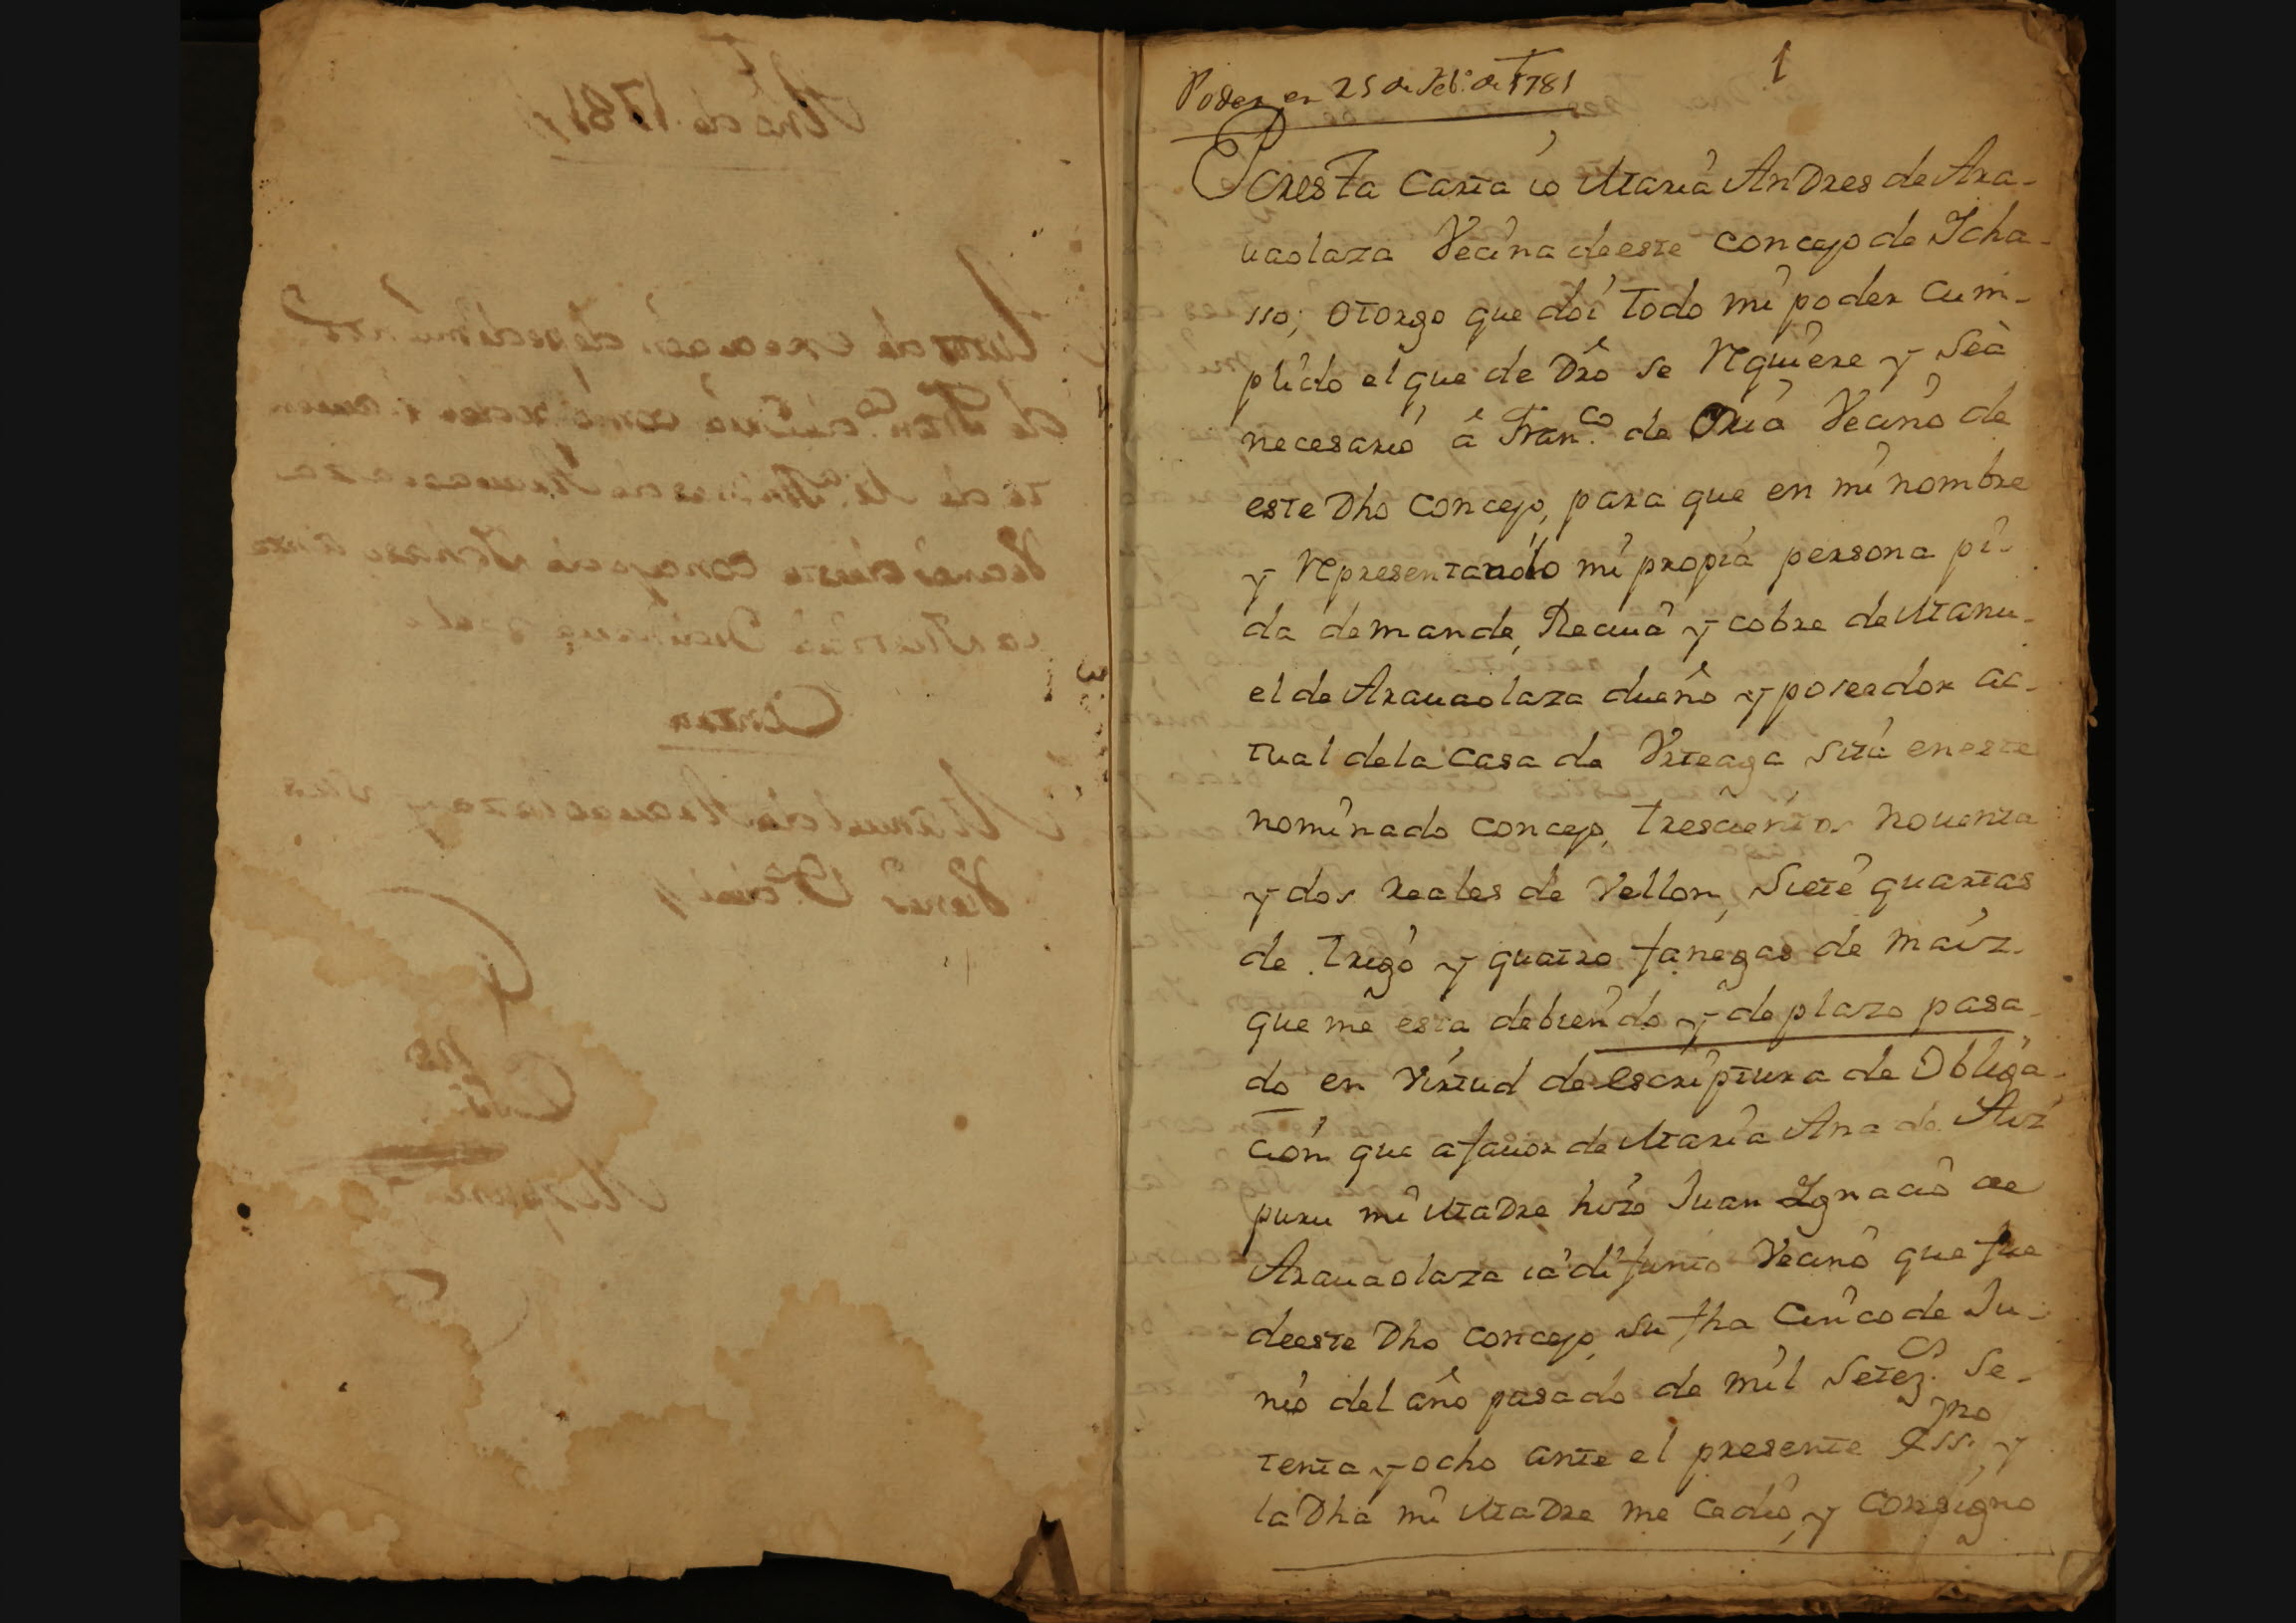 Poder en 25 de Feb.º de 1781
1
Por esta carta io Maria Andres de Ara-
uaolaza Vecina de este concejo de Icha-
sso, otorgo que doi todo mi poder cum-
plido el que de Dro se requiere y sea
necesario â Fran.co de Oria Vecino de
este Dho concejo, para que en mi nombre
y representando mi propia persona pi-
da demande, Reciua y cobre de Manu-
el de Arauaolaza dueño y poseedor ac-
tual de la casa de Vrteaga sita en este
nominado concejo, trescientos nouenta
y dos reales de Vellon, Siete quartas
de trigo y quatro fanegas de maiz
que me esta debiendo y de plazo pasa-
do en virtud de escriptura de Obliga-
cion que a fauor de Maria Ana de Aiz
puru mi Madre hizo Juan Ignacio de
Arauaolaza iâ difunto Vecino que fue
de este Dho concejo, su fha Cinco de Ju-
nio del año pasado de mil Setez.os Se-
tenta y ocho ante el presente Ess.no y
la Dha mi Madre me cedio, y consigno
Año de 1781
Autos de execucion de pedimento
de Fran.co de Oria como poder
te de M.a Andres de Arauaolaza
Vecina de este concejo de Ichaso ante
la Justicia
Contra
Manuel de Arauaolaza y sus
Vienes